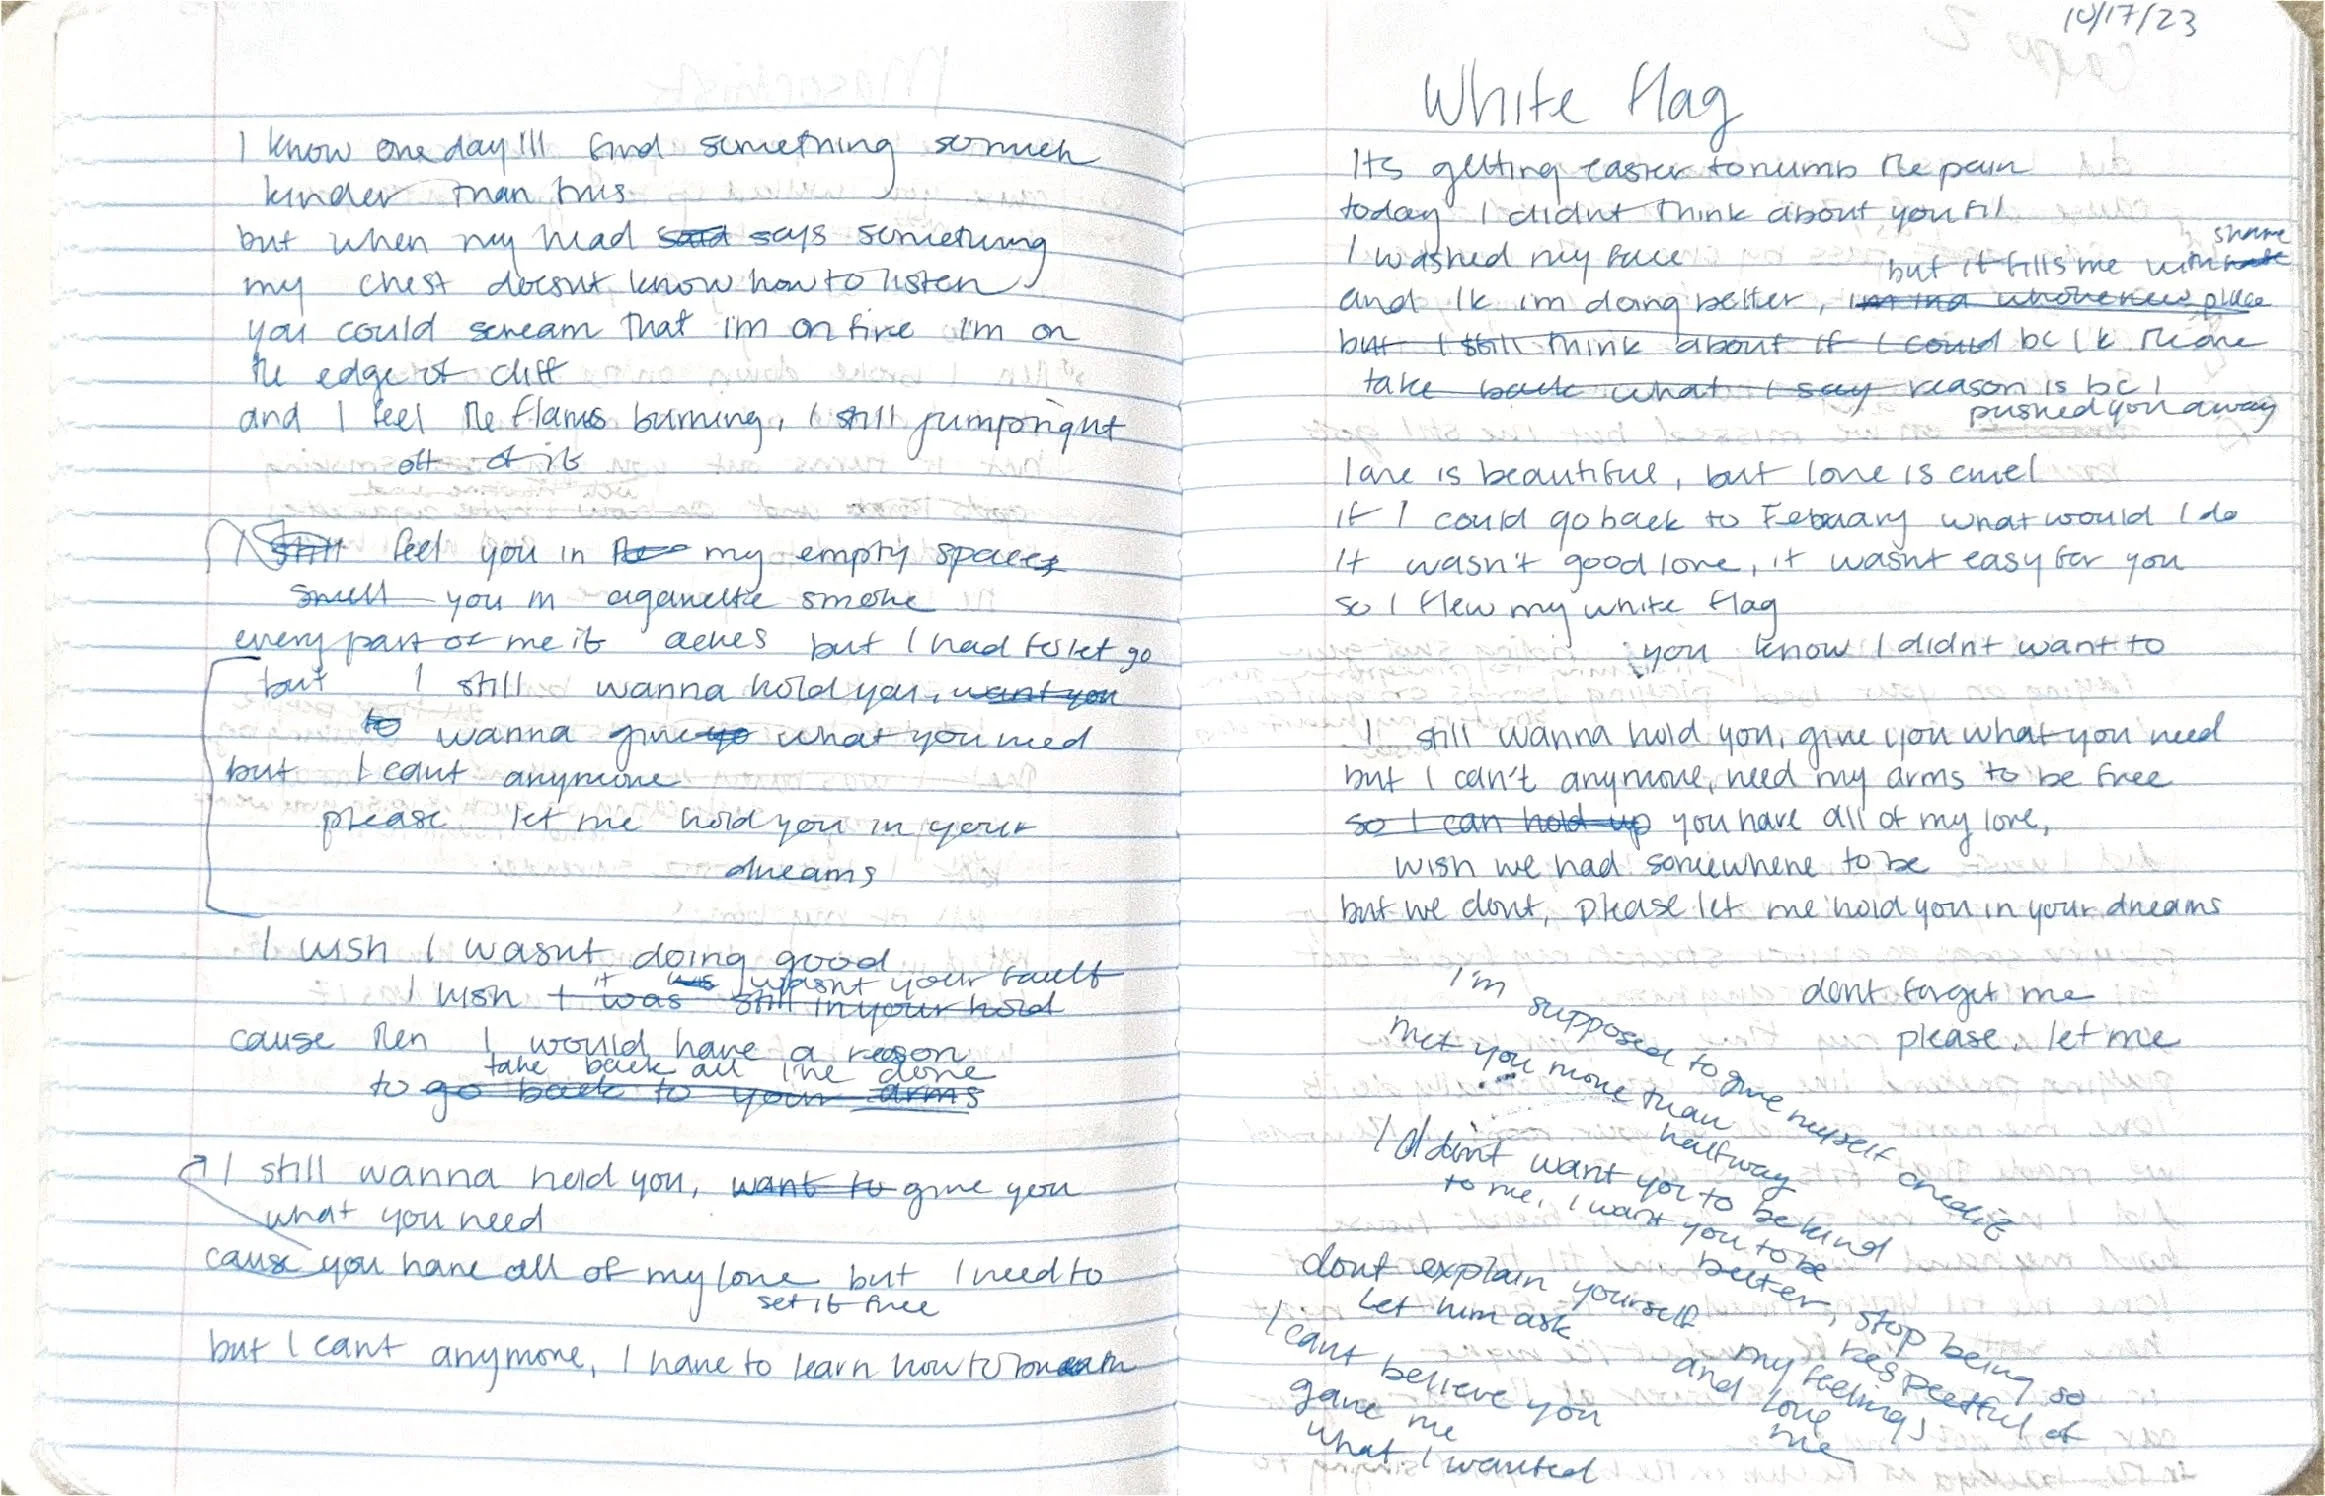 I know one day I'll find something so much
kinder than this
but when my head said says something
my chest doesnt know how to listen
you could scream that i'm on fire I'm on
the edge of cliff
and I feel the flames burning, I still jump right
off of it
I still feel you in my empty spaces
smell you in cigarette smoke
every part of me it aches but I had to let go
but I still wanna hold you, want you
to wanna give yo what you need
but I cant anymore
please let me hold you in your
dreams
I wish I wasnt doing good
it was wasnt your fault
I wish I was still in your hold
cause then I would have a reason
take back all Ive done
to go back to your arms
I still wanna hold you, want to give you
what you need
cause you have all of my love but I need to
set it free
but I cant anymore, I have to learn how to
10/17/23
White flag
Its getting easier to numb the pain
today I didnt think about you til
I washed my face
shame
but it fills me with hate
and Ik im doing better, im in a whole new place
but I still think about if I could bc Ik the one
take back what I say reason is bc I
pushed you away
love is beautiful, but love is cruel
if I could go back to Febuary what would I do
It wasn't good love, it wasnt easy for you
so I flew my white flag
you know I didnt want to
I still wanna hold you, give you what you need
but I can't anymore, need my arms to be free
so I can hold up you have all of my love,
wish we had somewhere to be
but we dont, please let me hold you in your dreams
dont forget me
please, let me
I'm supposed to give myself credit
met you more than halfway
I didnt want you to be kind
to me, I want you to be
better, stop being so
respectful of
my feelings
and love
me
dont explain yourself
Let him ask
I cant believe you
gave me
what I wanted